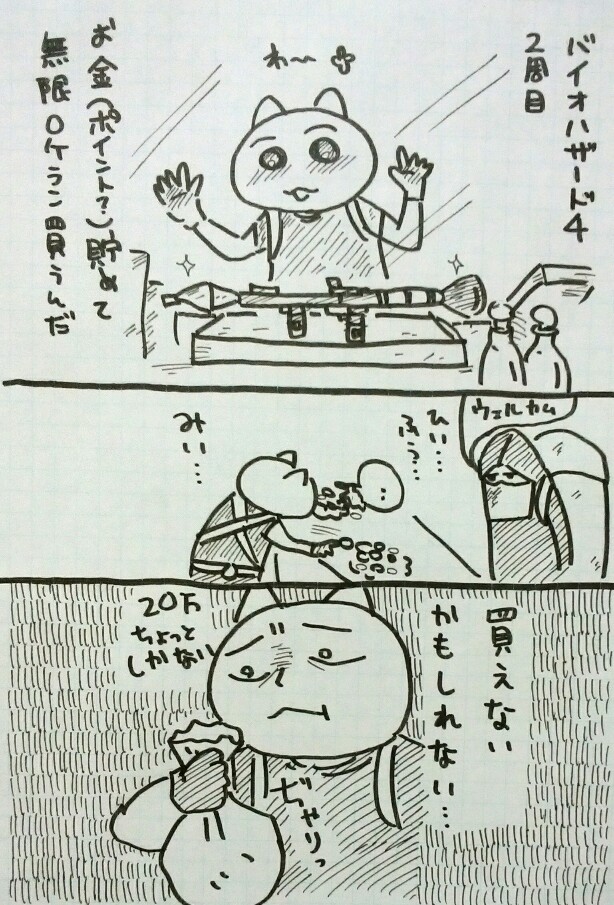 バイオハザード4
2周目
わ～
お金(ポイント?)貯めて
無限ロケラン買うんだ
ウェルカム
ひい…
ふう…
みい…
買えない
かもしれない…
20万
ちょっと
しかない
ぢゃりっ